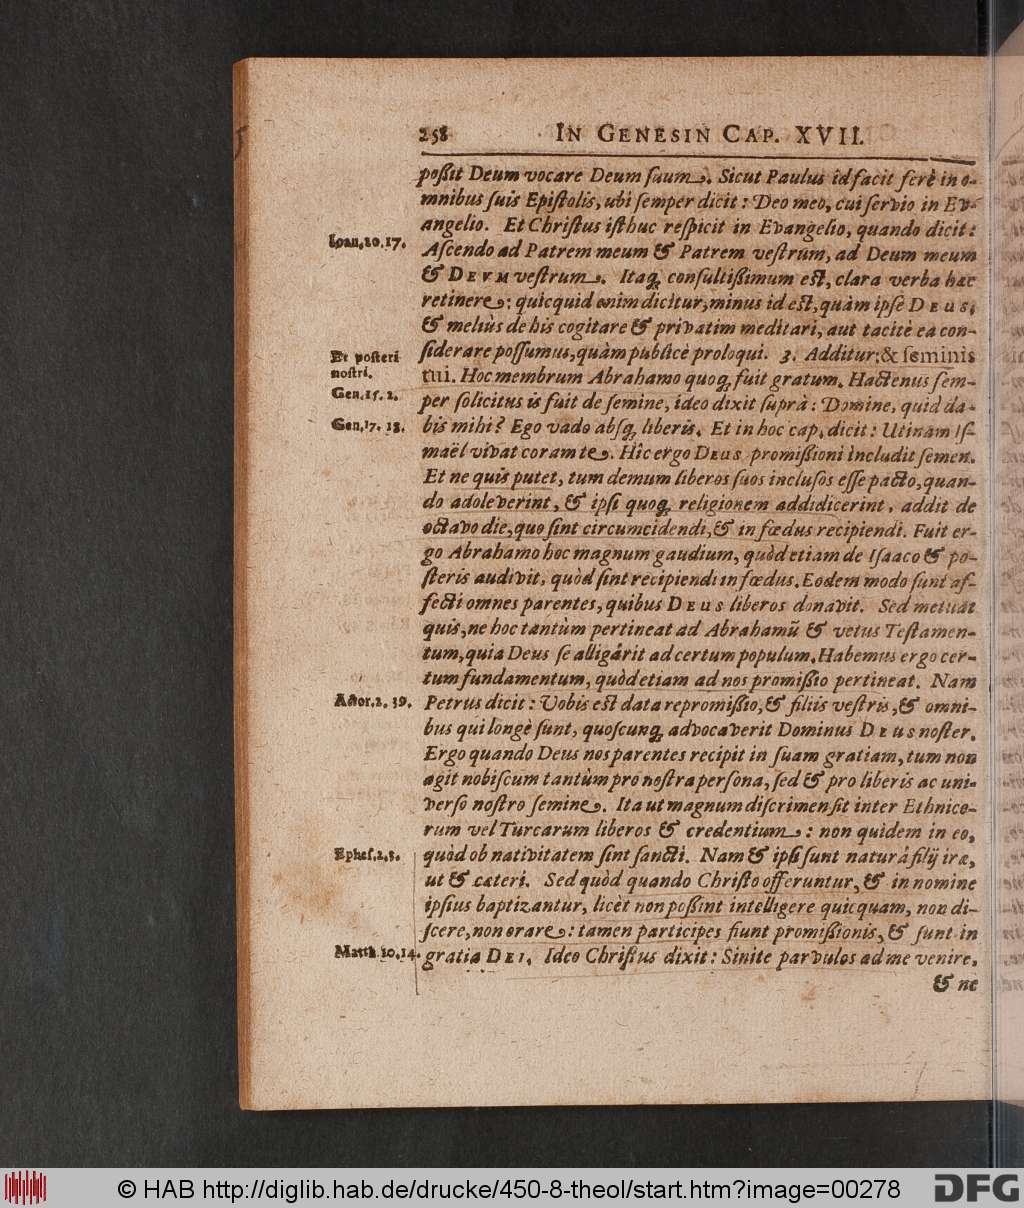 258 IN GENESIN CAP. XVII.
poßit Deum vocare Deum ſuum. Sicut Paulus id facit ferè in o-
mnibus ſuis Epiſtolis, ubi ſemper dicit: Deo meo, cui ſervio in Ev-
angelio. Et Chriſtus iſthuc reſpicit in Evangelio, quando dicit:
Ioan. 20. 17.
Aſcendo ad Patrem meum & Patrem veſtrum, ad Deum meum
& DEVM veſtrum. Itaq; conſultißimum eſt, clara verba hæc
retinere: quicquid enim dicitur, minus id eſt, quàm ipſe DEUS;
& meliùs de his cogitare & privatim meditari, aut tacitè ea con-
Et poſteri
nostri.
ſiderare poſſumus, quàm publicè proloqui. 3. Additur: & ſeminis
tui. Hoc membrum Abrahamo quoq; fuit gratum. Hactenus ſem-
Gen. 15. 2.
per ſolicitus is fuit de ſemine, ideo dixit ſuprà: Domine, quid da-
Gen. 17. 18.
bis mihi? Ego vado abſq; liberis. Et in hoc cap. dicit: Utinam Iſ-
maël vivat coram te. Hîc ergo DEUS promißioni includit ſemen.
Et ne quis putet, tum demum liberos ſuos incluſos eſſe pacto, quan-
do adoleverint, & ipſi quoq; religionem addidicerint, addit de
octavo die, quo ſint circumcidendi, & in fœdus recipiendi. Fuit er-
go Abrahamo hoc magnum gaudium, quòd etiam de Iſaaco & po-
ſteris audivit, quòd ſint recipiendi in fœdus. Eodem modo ſunt af-
fecti omnes parentes, quibus DEUS liberos donavit. Sed metuat
quis, ne hoc tantùm pertineat ad Abrahamũ & vetus Teſtamen-
tum, quia Deus ſe alligârit ad certum populum. Habemus ergo cer-
tum fundamentum, quòd etiam ad nos promißio pertineat. Nam
Actor. 2. 39.
Petrus dicit: Vobis eſt data repromißio, & filiis veſtris, & omni-
bus qui longè ſunt, quoſcunq; advocaverit Dominus DEUS noſter.
Ergo quando Deus nos parentes recipit in ſuam gratiam, tum non
agit nobiſcum tantùm pro noſtra perſona, ſed & pro liberis ac uni-
verſo noſtro ſemine. Ita ut magnum diſcrimen ſit inter Ethnico-
rum vel Turcarum liberos & credentium: non quidem in eo,
Epheſ. 2, 3.
quòd ob nativitatem ſint ſancti. Nam & ipſi ſunt naturâ filij iræ,
ut & cæteri. Sed quòd quando Chriſto offeruntur, & in nomine
ipſius baptizantur, licèt non poßint intelligere quicquam, non di-
ſcere, non orare: tamen participes fiunt promißionis, & ſunt in
Matth. 10. 14.
gratia DEI. Ideo Chriſtus dixit: Sinite parvulos ad me venire,
& ne
© HAB http://diglib.hab.de/drucke/450-8-theol/start.htm?image=00278
DFG